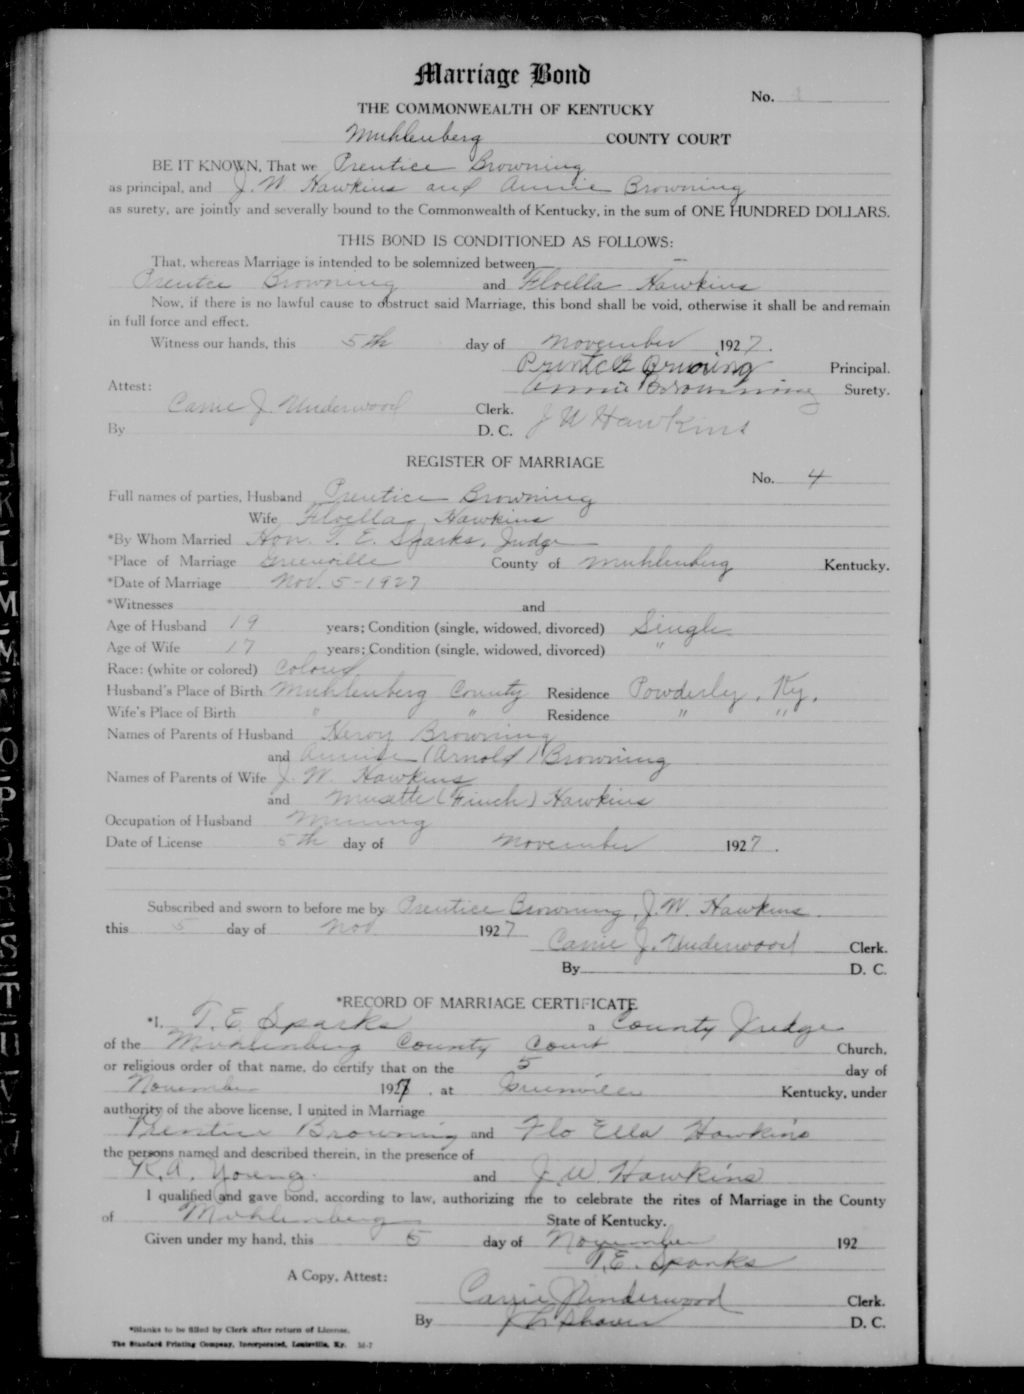 Marriage Bond
No.
THE COMMONWEALTH OF KENTUCKY
Muhlenberg COUNTY COURT
BE IT KNOWN, That we Prentice Browning
as principal, and J. W. Hawkins and Annie Browning
as surety, are jointly and severally bound to the Commonwealth of Kentucky, in the sum of ONE HUNDRED DOLLARS.
THIS BOND IS CONDITIONED AS FOLLOWS:
That, whereas Marriage is intended to be solemnized between
Prentce Browning and Floella Hawkins
Now, if there is no lawful cause to obstruct said Marriage, this bond shall be void, otherwise it shall be and remain
in full force and effect.
Witness our hands, this 5th day of November 1927.
Browning Principal.
Attest: Annie Browning Surety.
Carrie J. Underwood Clerk.
By D. C. J W Hawkins
REGISTER OF MARRIAGE
No. 4
Full names of parties, Husband Prentice Browning
Wife Floella Hawkins
*By Whom Married Hon. T. E. Sparks, Judge
*Place of Marriage Greenville County of Muhlenberg Kentucky.
*Date of Marriage Nov. 5-1927
*Witnesses and
Age of Husband 19 years; Condition (single, widowed, divorced) Single
Age of Wife 17 years; Condition (single, widowed, divorced) "
Race: (white or colored) Colored
Husband's Place of Birth Muhlenberg County Residence Powderly, Ky.
Wife's Place of Birth " " Residence " "
Names of Parents of Husband Browning
and (Arnold) Browning
Names of Parents of Wife J. W. Hawkins
and Musette (Finch) Hawkins
Occupation of Husband Mining
Date of License 5th day of November 1927.
Subscribed and sworn to before me by Prentice Browning, J. W. Hawkins.
this 5 day of Nov 1927
Carrie J. Underwood Clerk.
By D. C.
*RECORD OF MARRIAGE CERTIFICATE
*I, T. E. Sparks a County Judge
of the Muhlenberg County Court Church,
or religious order of that name, do certify that on the 5 day of
November 1927, at Greenville Kentucky, under
authority of the above license, I united in Marriage
Prentice Browning and Flo Ella Hawkins
the persons named and described therein, in the presence of
R. A. Young. and J. W. Hawkins
I qualified and gave bond, according to law, authorizing me to celebrate the rites of Marriage in the County
of Muhlenberg State of Kentucky.
Given under my hand, this 5 day of November 192
T. E. Sparks
A Copy, Attest:
Carrie J Underwood Clerk.
By D. C.
*Blanks to be filled by Clerk after return of License.
The Standard Printing Company, Incorporated, Louisville, Ky.